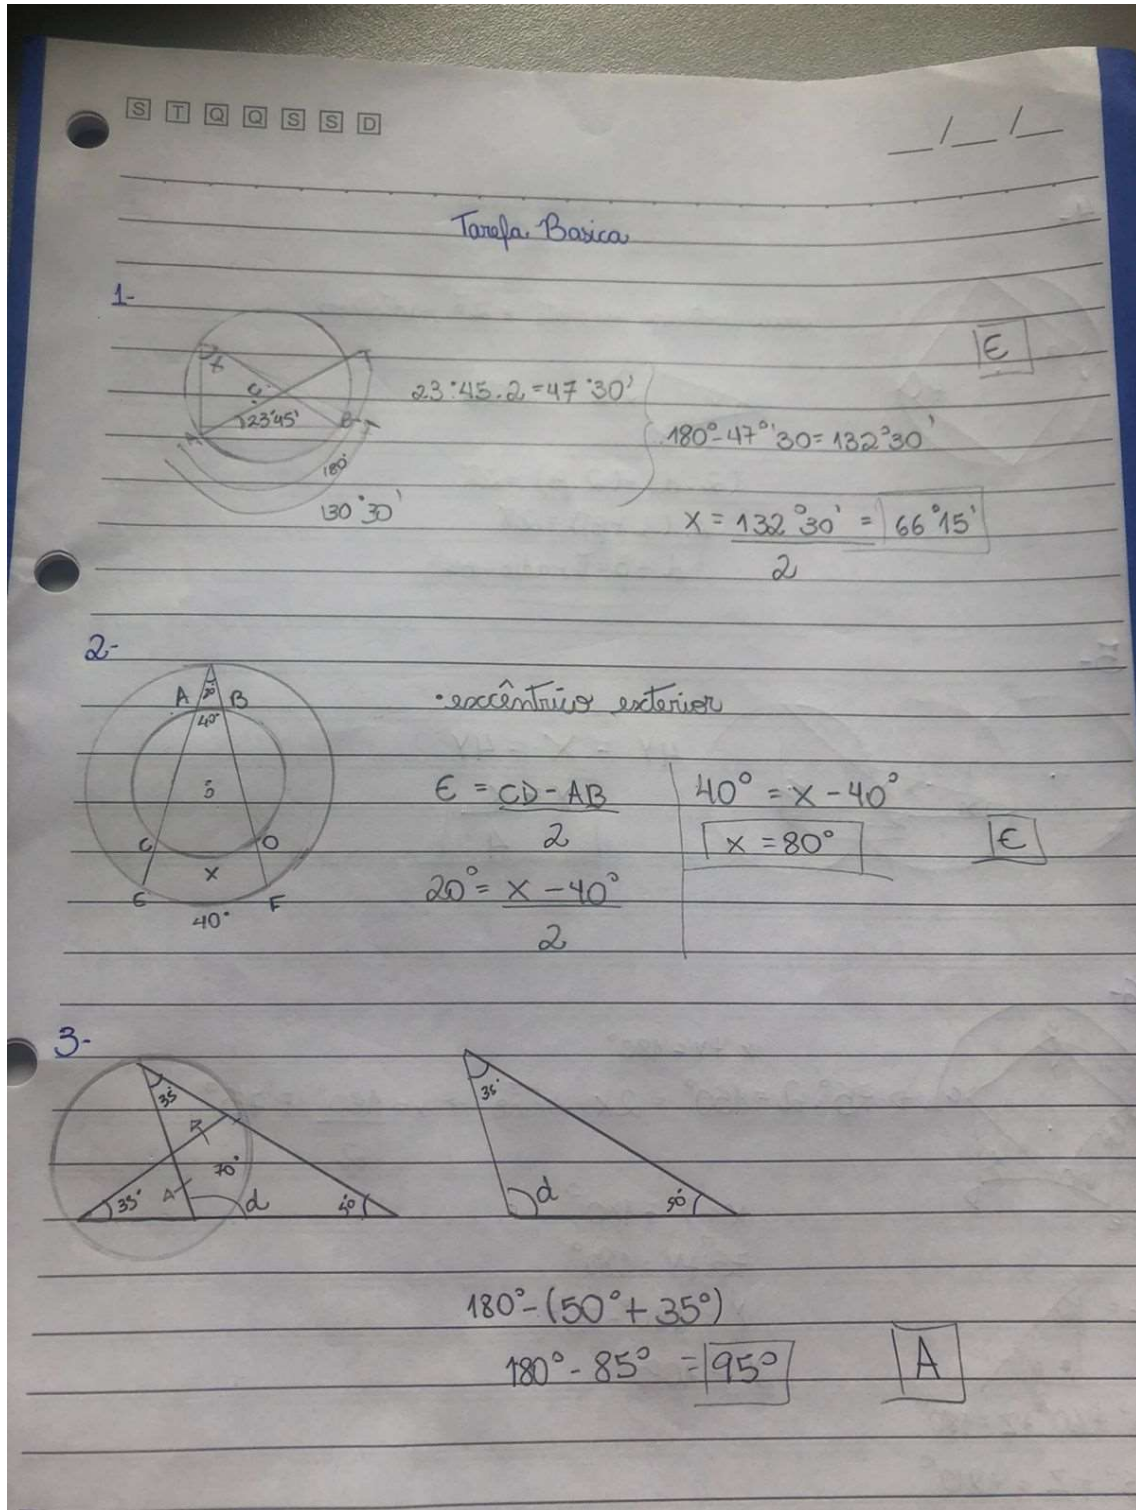 S T Q Q S S D
__/__/__
Tarefa Basica
1-
E
x
C
23°45'
A
B
180°
130°30'
23°45.2=47°30'
180°-47°'30=132°30'
x = 132°30' = 66°15'
2
2-
A
B
40°
C
D
x
E
F
40°
•excêntrico exterior
E = CD-AB
2
20°= x-40°
2
40°=x-40°
x=80°
E
3-
35°
70°
35°
d
40°
35°
d
50°
180°-(50°+35°)
180°-85° =95°
A